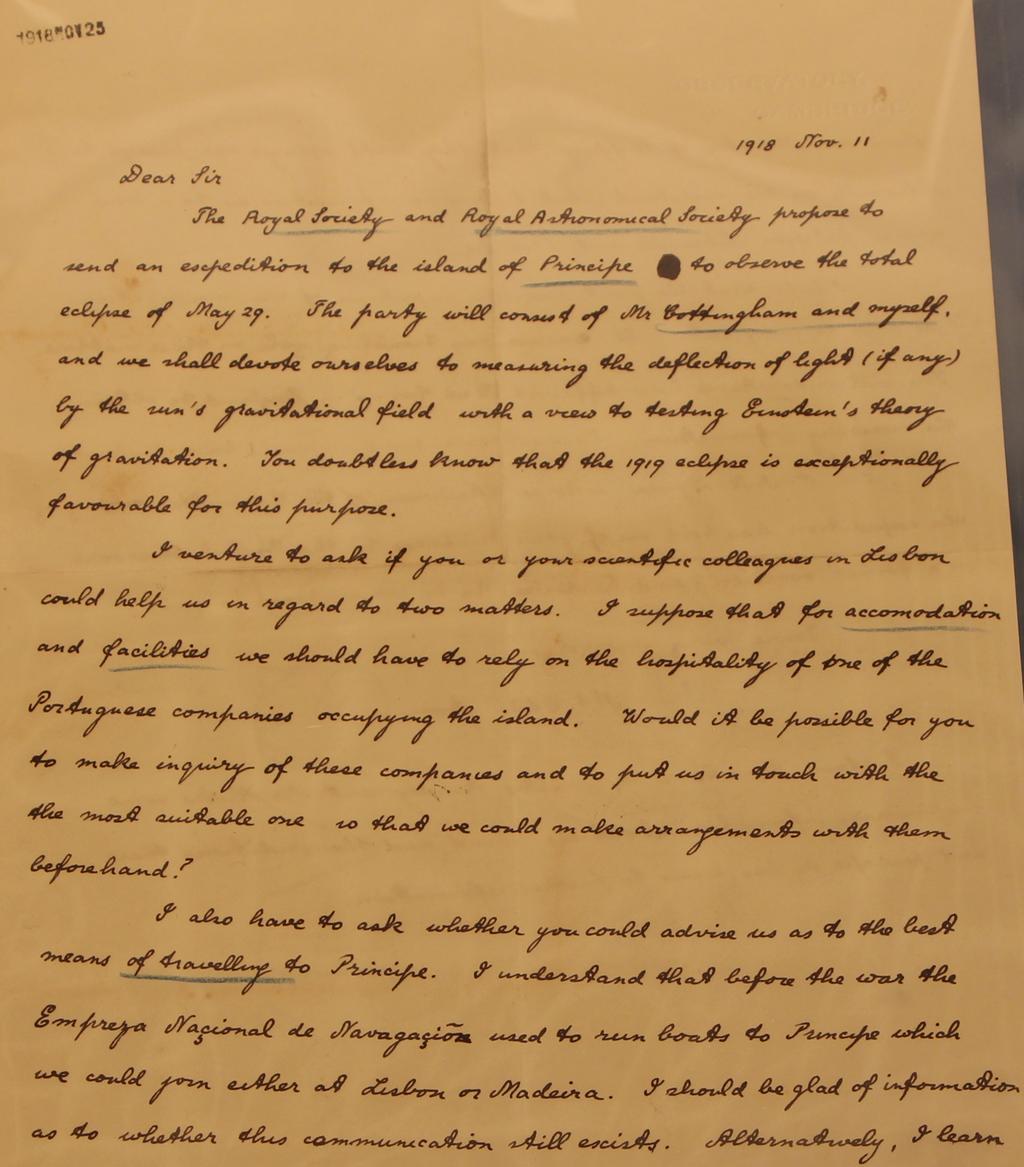 1918 NOV 25
1918 Nov. 11
Dear Sir
The Royal Society and Royal Astronomical Society propose to
send an expedition to the island of Principe to observe the total
eclipse of May 29. The party will consist of Mr Cottingham and myself,
and we shall devote ourselves to measuring the deflection of light (if any)
by the sun's gravitational field with a view to testing Einstein's theory
of gravitation. You doubtless know that the 1919 eclipse is exceptionally
favourable for this purpose.
I venture to ask if you or your scientific colleagues in Lisbon
could help us in regard to two matters. I suppose that for accomodation
and facilities we should have to rely on the hospitality of one of the
Portuguese companies occupying the island. Would it be possible for you
to make inquiry of these companies and to put us in touch with the
the most suitable one so that we could make arrangements with them
beforehand?
I also have to ask whether you could advise us as to the best
means of travelling to Principe. I understand that before the war the
Empreza Naçional de Navagaçiõn used to run boats to Principe which
we could join either at Lisbon or Madeira. I should be glad of information
as to whether this communication still exists. Alternatively, I learn